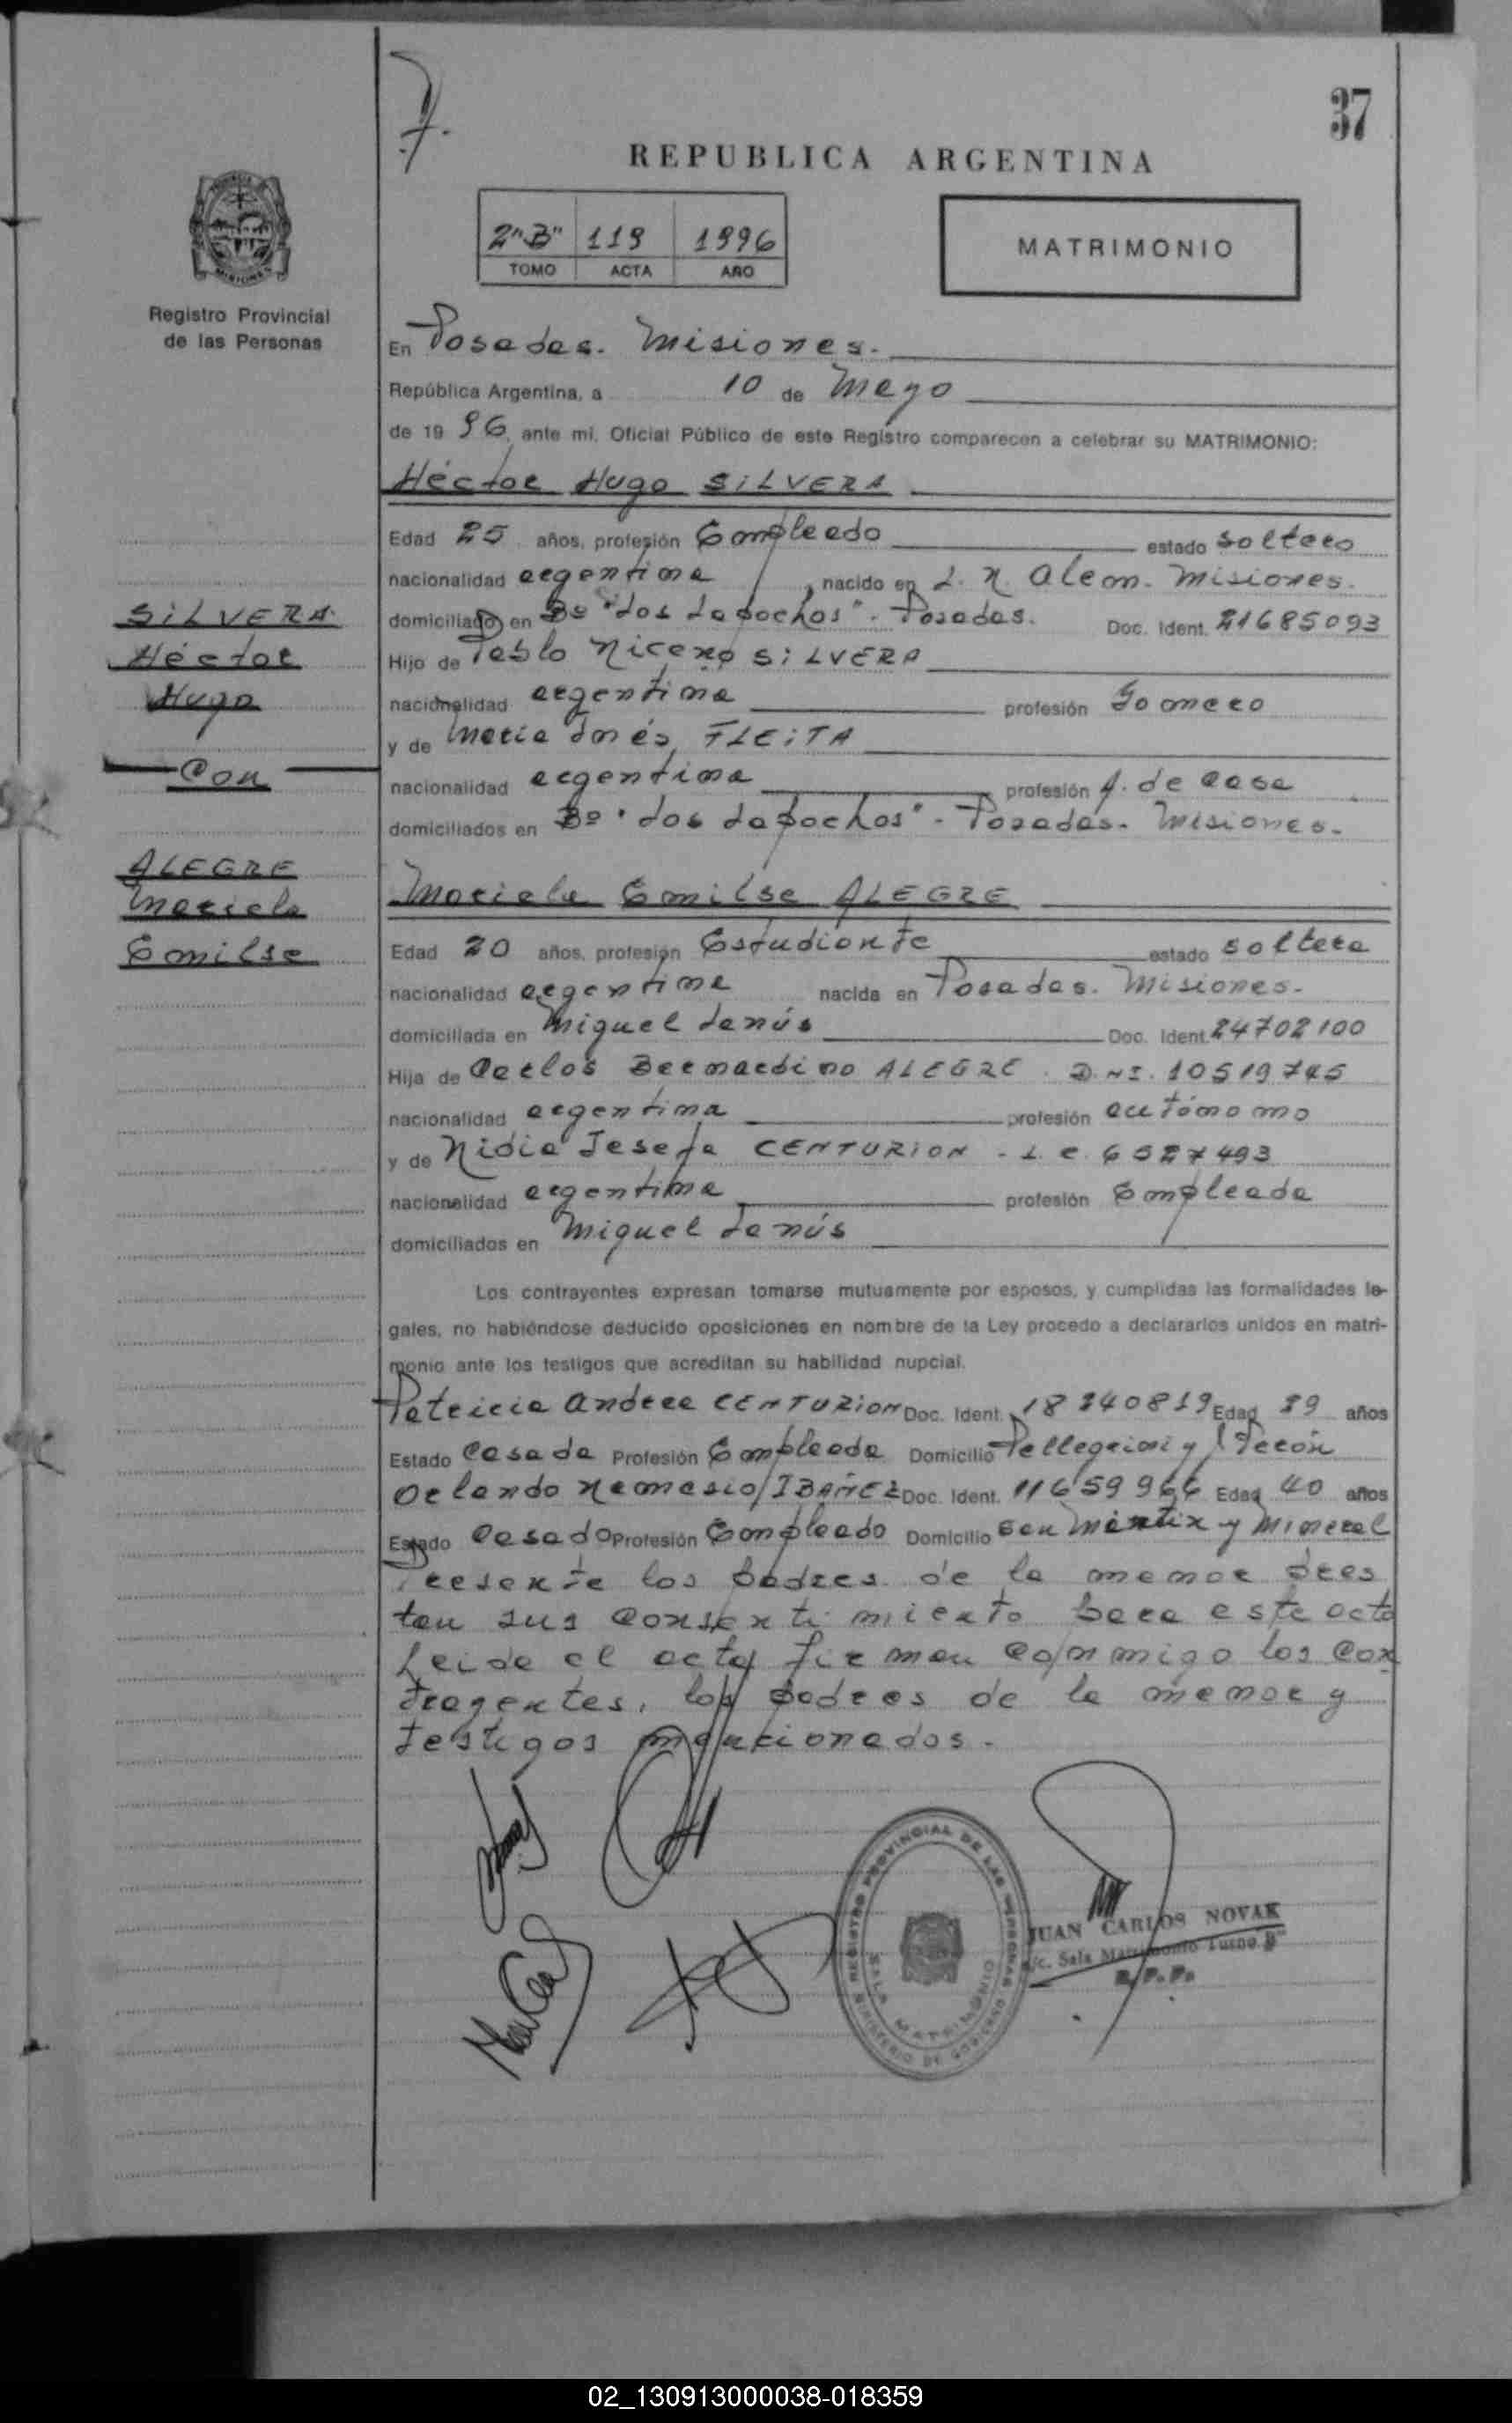 37
REPUBLICA ARGENTINA
2"B" 119 1996
TOMO ACTA AÑO
MATRIMONIO
Registro Provincial
de las Personas
En Posadas. Misiones.
República Argentina, a 10 de Mayo
de 19 96, ante mi, Oficial Público de este Registro comparecen a celebrar su MATRIMONIO:
Héctor Hugo SILVERA
Edad 25 años, profesión Empleado estado soltero
nacionalidad argentina, nacido en L. N. Alem. Misiones.
domiciliado en Bº "Los Lapachos". Posadas. Doc. Ident. 21685093
Hijo de Pablo SILVERA
nacionalidad argentina profesión Gomero
y de Maria Inés FLEITA
nacionalidad argentina profesión A. de casa
domiciliados en Bº "Los Lapachos" - Posadas. Misiones.
SILVERA
Héctor
Hugo
Con
ALEGRE
Mariela
Emilse
Mariela Emilse ALEGRE
Edad 20 años, profesión Estudiante estado soltera
nacionalidad argentina nacida en Posadas. Misiones.
domiciliada en Miguel Lanús Doc. Ident. 24702100
Hija de Carlos Bernardino ALEGRE. D.N.I. 10519745
nacionalidad argentina profesión autónomo
y de Nidia Josefa CENTURION - L.C. 6527493
nacionalidad argentina profesión Empleada
domiciliados en Miguel Lanús
Los contrayentes expresan tomarse mutuamente por esposos, y cumplidas las formalidades le-
gales, no habiéndose deducido oposiciones en nombre de la Ley procedo a declararlos unidos en matri-
monio ante los testigos que acreditan su habilidad nupcial.
Patricia Andrea CENTURION Doc. Ident. 18240819 Edad 29 años
Estado Casada Profesión Empleada Domicilio Pellegrini y Perón
Orlando Nemesio IBAÑEZ Doc. Ident. 11659966 Edad 40 años
Estado Casado Profesión Empleado Domicilio San Martin y Mineral
Presente los padres de la menor pres
tan sus consentimiento para este acto
Leida el acta firman conmigo los con
trayentes, los padres de la menor y
testigos mencionados.
REGISTRO PROVINCIAL DE LAS PERSONAS
SALA MATRIMONIO
MINISTERIO DE GOBIERNO
JUAN CARLOS NOVAK
/c. Sala Matrimonio Turno B"
R. P. P.
02_130913000038-018359